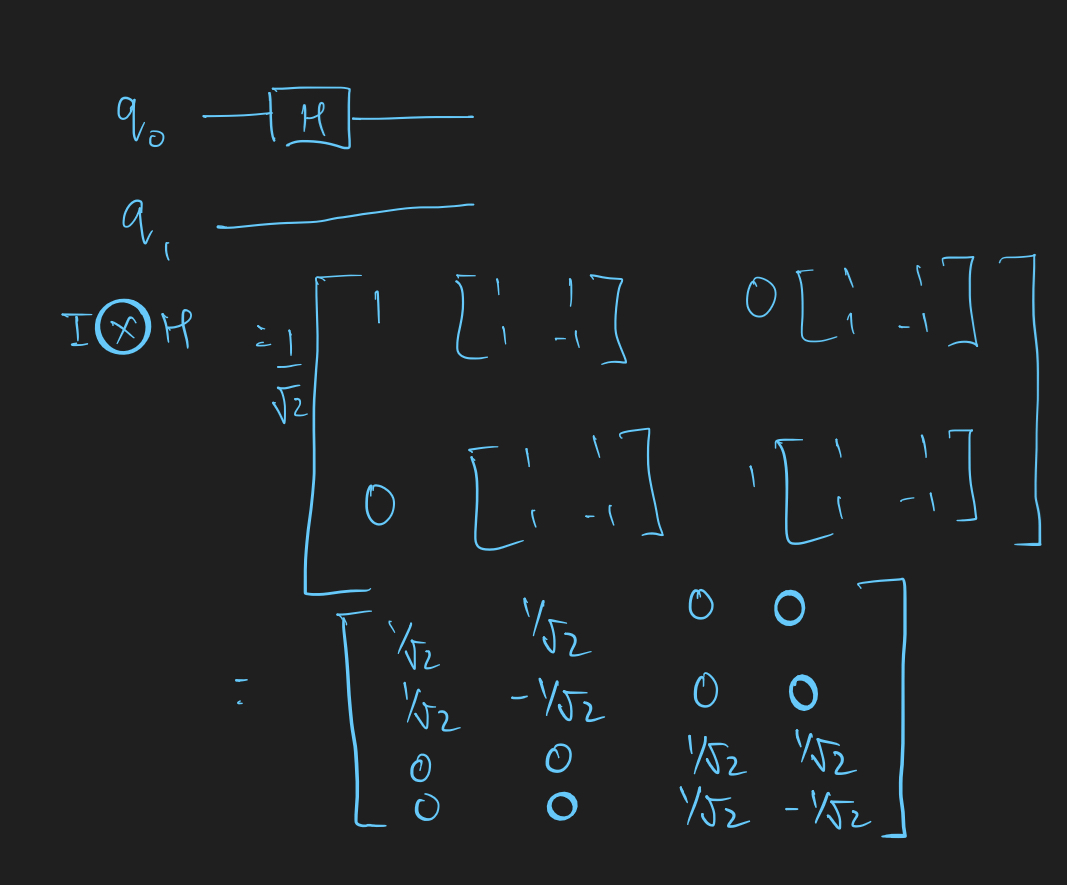 q₀ H
q₁
I ⊗ H = 1/√2 [ 1 [ 1 1 0 [ 1 1 ]
1 -1 ] 1 -1 ]
0 [ 1 1 1 [ 1 1
1 -1 ] 1 -1 ] ]
= [ 1/√2 1/√2 0 0
1/√2 -1/√2 0 0
0 0 1/√2 1/√2
0 0 1/√2 -1/√2 ]